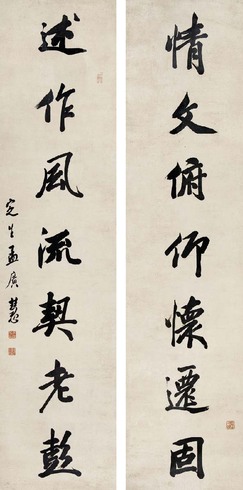 情文俯仰懷遷固
述作風流契老彭
定生孟廣慧